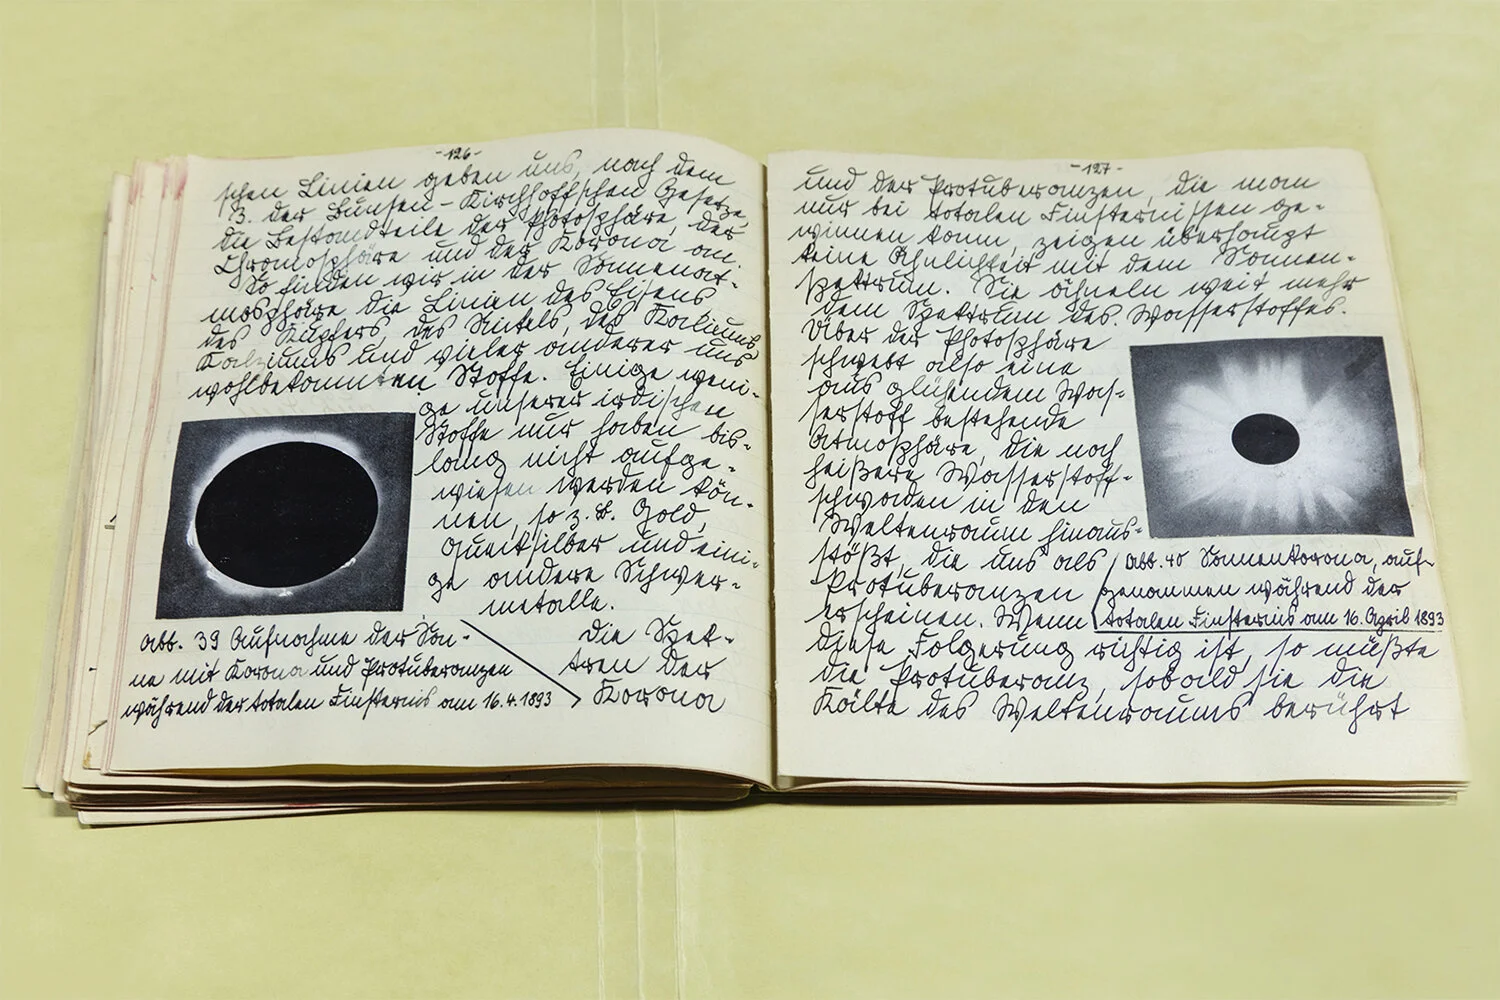 -126-
schen Linien geben uns, nach dem
3. der Bunsen-Kirchhoffschen Gesetze,
die Bestandteile der Photosphäre, der
Chromosphäre und der Korona an.
So finden wir in der Sonnenat-
mosphäre die Linien des Eisens
des Kupfers, des Nikels, des Kaliums
Kalziums und vieler anderer uns
wohlbekannten Stoffe. Einige weni-
ge unserer irdischen
Stoffe nur haben bis-
lang nicht aufge-
wiesen werden kön-
nen, so z. B. Gold,
Quecksilber und eini-
ge andere Schwer-
metalle.
Abb. 39 Aufnahme der Son-
ne mit Korona und Protuberanzen
während der totalen Finsternis am 16.4.1893
Die Spek-
tren der
Korona
-127-
und der Protuberanzen, die man
nur bei totalen Finsternissen ge-
winnen kann, zeigen überhaupt
keine Ähnlichkeit mit dem Sonnen-
spektrum. Sie ähneln weit mehr
dem Spektrum des Wasserstoffes.
Über der Photosphäre
schwebt also eine
aus glühendem Was-
serstoff bestehende
Atmosphäre, die noch
heißere Wasserstoff-
schwaden in den
Weltenraum hinaus-
stößt, die uns als
Protuberanzen
erscheinen. Wenn
Abb. 40 Sonnenkorona, auf-
genommen während der
totalen Finsternis am 16. April 1893
diese Folgerung richtig ist, so müßte
die Protuberanz, sobald sie die
Kälte des Weltenraums berührt